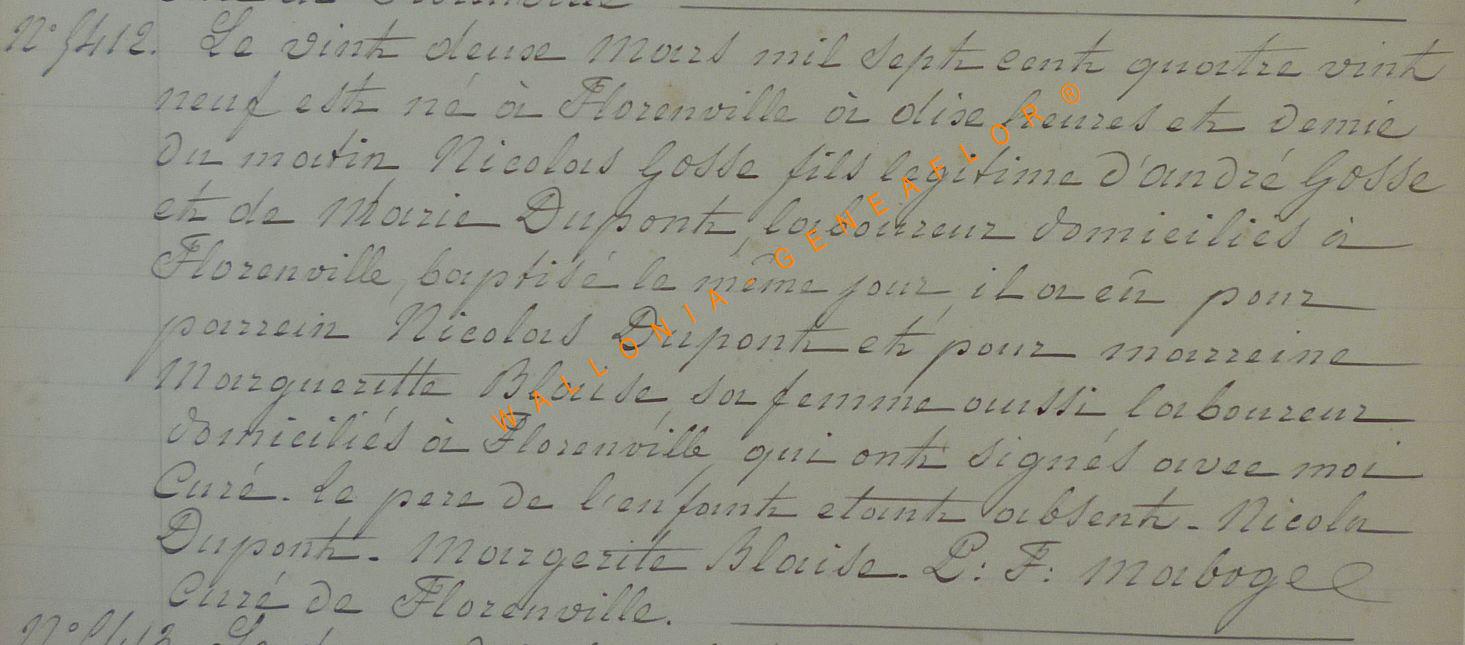 N° 5412. Le vint deux Mars mil sept cent quatre vint
neuf est né à Florenville à dixe heures et demie
du matin Nicolas Gosse fils legitime d'andré Gosse
et de Marie Dupont, laboureur domiciliés à
Florenville, baptisé le même jour, il a eû pour
parrein Nicolas Dupont et pour marreine
Margueritte Blaise sa femme aussi laboureur
domiciliés à Florenville, qui ont signés avec moi
Curé. le pere de l'enfant etant absent. Nicola
Dupont. Margerite Blaise. P: F: Maboge
Curé de Florenville.
WALLONIA GENEAFLOR ®